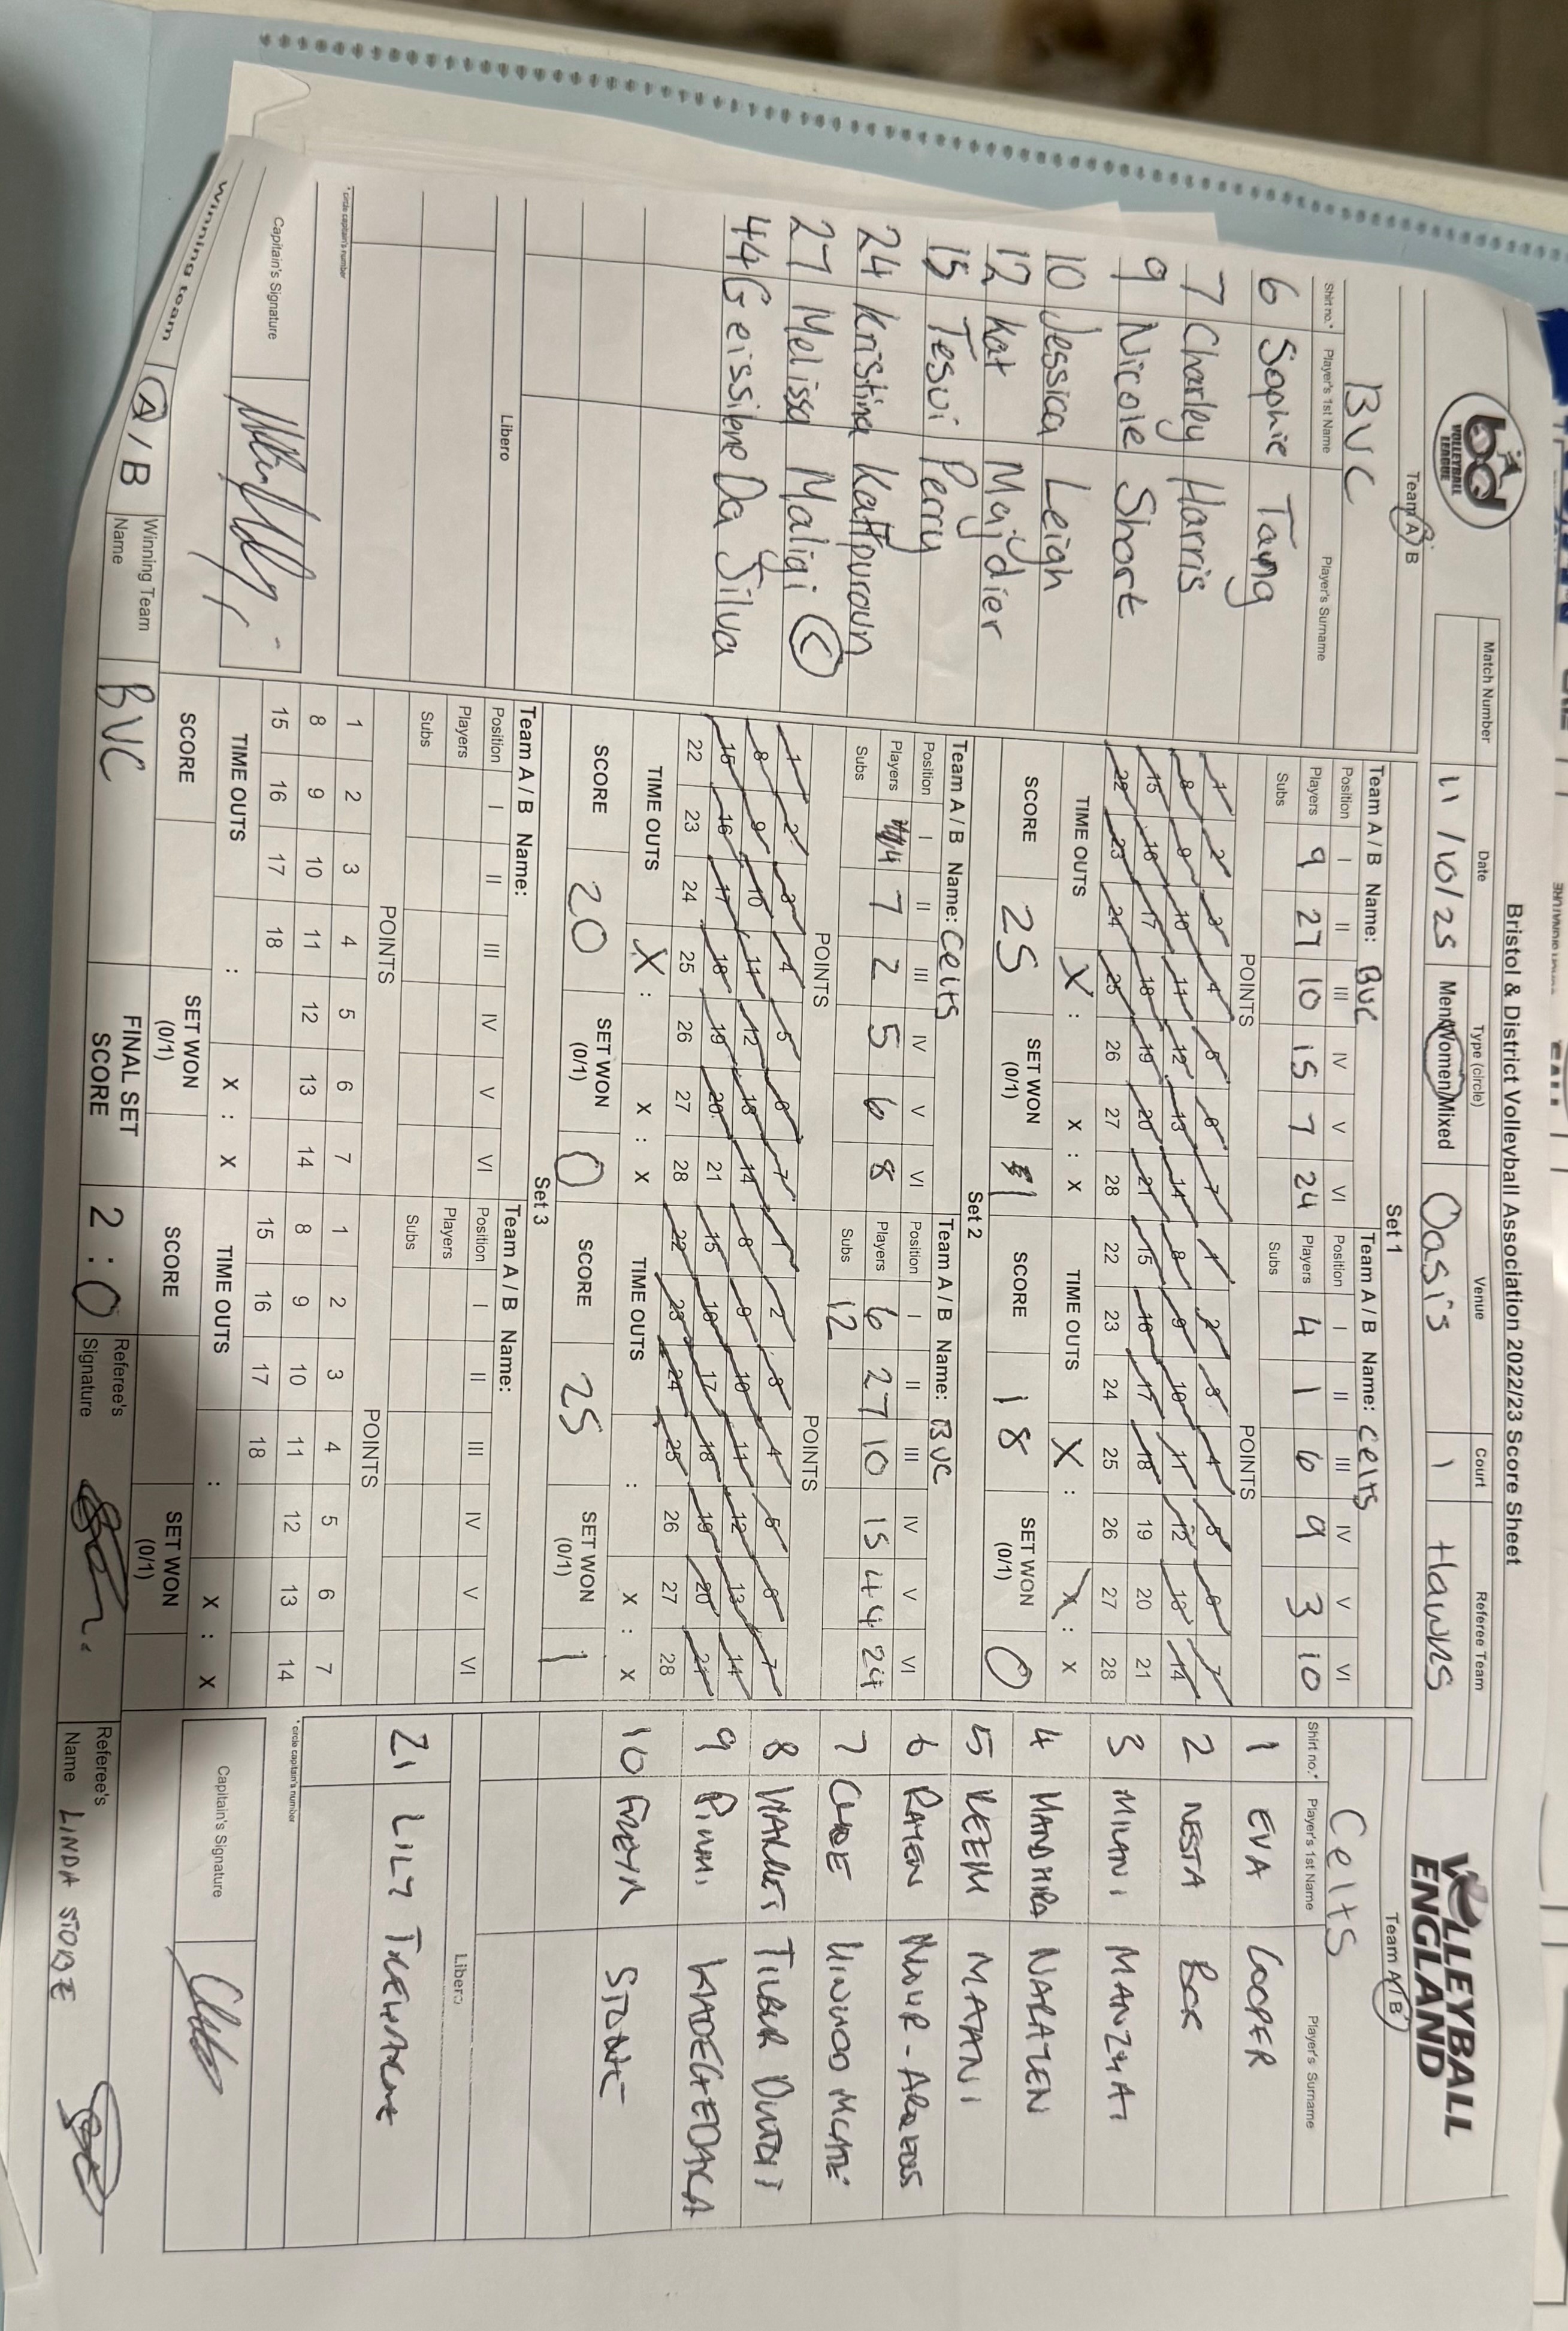 Bristol & District Volleyball Association 2022/23 Score Sheet
bd
VOLLEYBALL
LEAGUE
Match Number Date Type (circle) Venue Court Referee Team
11/10/25 Men/Women/Mixed Oasis 1 Hawks
VOLLEYBALL
ENGLAND
Team A / B
BVC
Shirt no.* Player's 1st Name Player's Surname
6 Sophie Tang
7 Charley Harris
9 Nicole Short
10 Jessica Leigh
12 Kat Majdier
15 Tesui Perry
24 Kristina
27 Melissa Maligi (C)
44 Geissilene Da Silva
Libero
* circle captain's number
Capitain's Signature
Set 1
Team A / B Name: BVC
Position I II III IV V VI
Players 9 27 10 15 7 24
Subs
POINTS
1 2 3 4 5 6 7
8 9 10 11 12 13 14
15 16 17 18 19 20 21
22 23 24 25 26 27 28
TIME OUTS X : X : X
SCORE 25 SET WON (0/1) 1
Team A / B Name: Celts
Position I II III IV V VI
Players 4 1 6 9 3 10
Subs
POINTS
1 2 3 4 5 6 7
8 9 10 11 12 13 14
15 16 17 18 19 20 21
22 23 24 25 26 27 28
TIME OUTS X : X : X
SCORE 18 SET WON (0/1) 0
Set 2
Team A / B Name: Celts
Position I II III IV V VI
Players 4 7 2 5 6 8
Subs
POINTS
1 2 3 4 5 6 7
8 9 10 11 12 13 14
15 16 17 18 19 20 21
22 23 24 25 26 27 28
TIME OUTS X : X : X
SCORE 20 SET WON (0/1) 0
Team A / B Name: BVC
Position I II III IV V VI
Players 6 27 10 15 44 24
Subs 12
POINTS
1 2 3 4 5 6 7
8 9 10 11 12 13 14
15 16 17 18 19 20 21
22 23 24 25 26 27 28
TIME OUTS : X : X
SCORE 25 SET WON (0/1) 1
Set 3
Team A / B Name:
Position I II III IV V VI
Players
Subs
POINTS
1 2 3 4 5 6 7
8 9 10 11 12 13 14
15 16 17 18
TIME OUTS : X : X
SCORE SET WON (0/1)
Team A / B Name:
Position I II III IV V VI
Players
Subs
POINTS
1 2 3 4 5 6 7
8 9 10 11 12 13 14
15 16 17 18
TIME OUTS : X : X
SCORE SET WON (0/1)
Team A / B
Celts
Shirt no.* Player's 1st Name Player's Surname
1 EVA COOPER
2 NESTA BOK
3 MILANI
4 MANDHIRA NARAYEN
5 REEM MAANI
6 RAHEN
7
8
9
10 FREYA STONE
Libero
21 LILY
* circle captain's number
Capitain's Signature
Winning team A / B Winning Team Name BVC FINAL SET SCORE 2 : 0 Referee's Signature Referee's Name LINDA